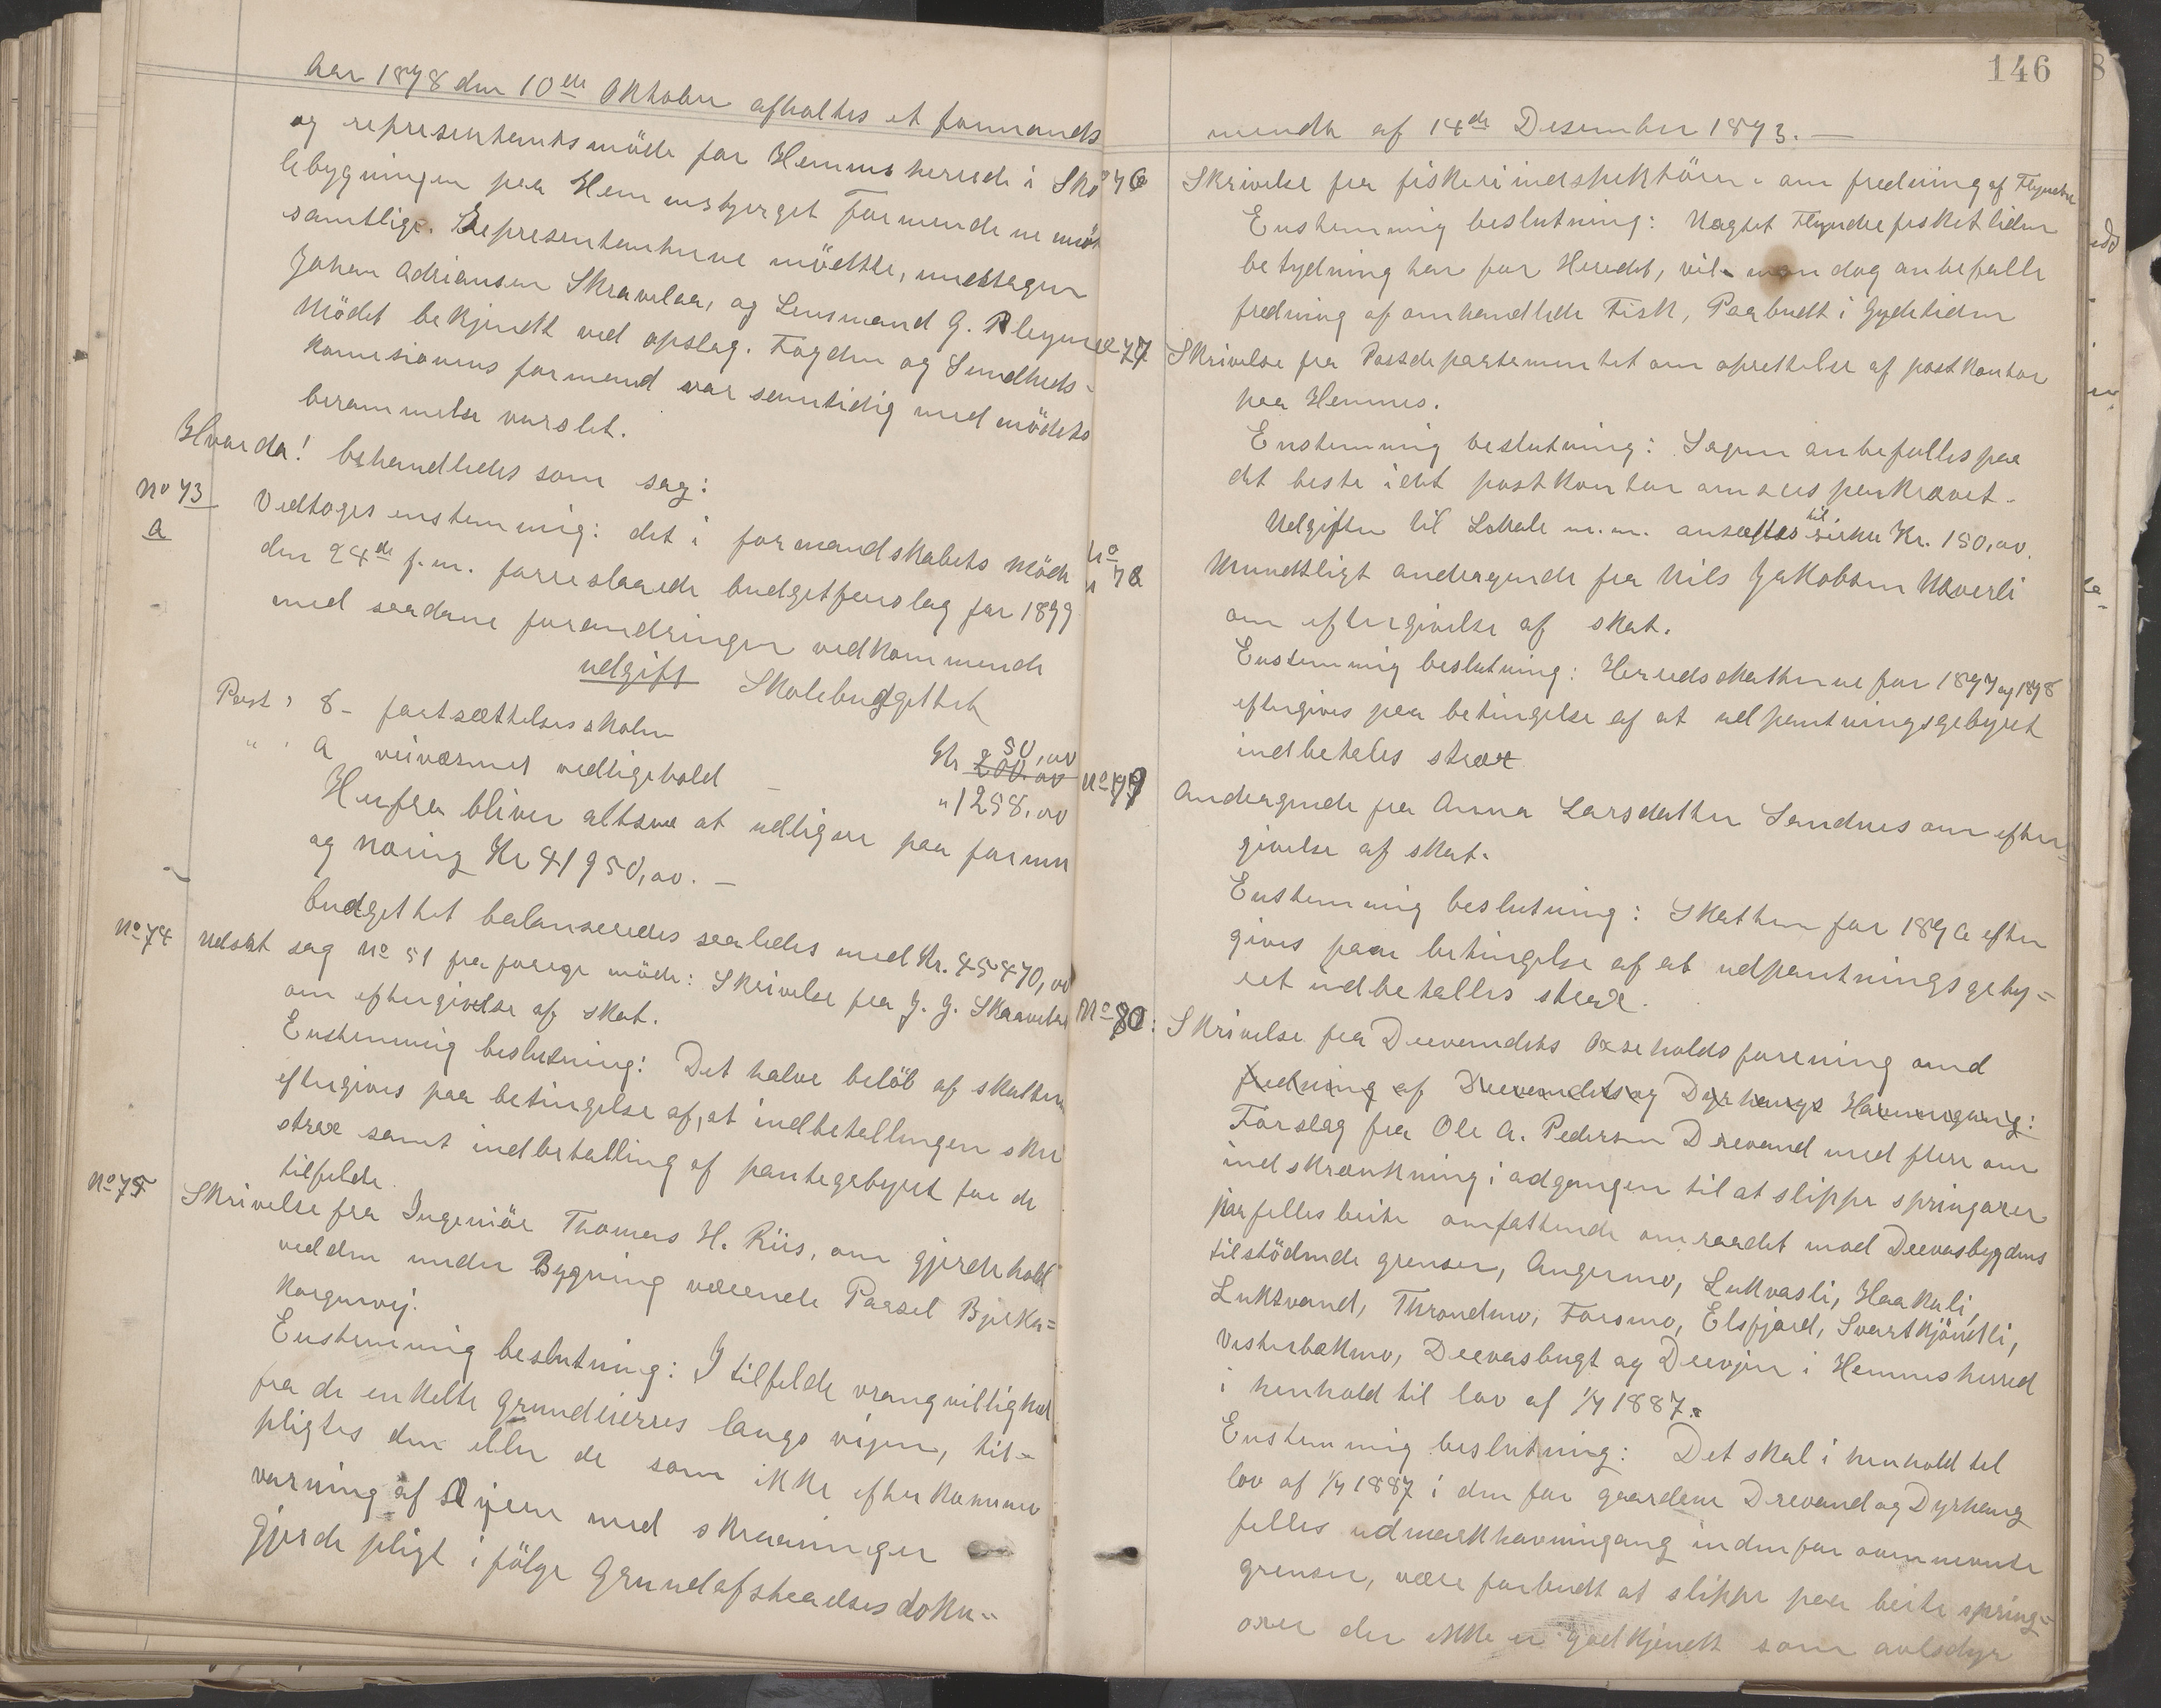 Aar 1898 den 10de Oktober afholtes et formands
og representantsmöde for Hemnes herred i Sko
lebygningen paa Hemnesbjerget Formendene möt
samtlige. Representanterne mödte, undtagen
Johan Adriansen Skravlaa, og Lensmand G.
Mödet bekjendt ved opslag. Fogden og Sundheds-
komisionens formand var samtidig med mödets
berammelse varslet.
Hvorda! behandledes som sag:
No 73
a
Vedtoges enstemmig: det i formandskabets möde
den 24de f.m. forreslaaede budgetforslag for 1899
med saadane forandringer vedkommende
udgift Skolebudgettet
Post 8 - fortsættelsesskolen Kr 200.00 50,00
" a veivæsenets vedligehold - " 1258,00
Herfra bliver altsaa at udligne paa formu
og næring Kr 41950,00. -
Budgettet balanseredes saaledes med Kr. 45470,00
No 74 Udsat sag No 51 fra forrige möde: Skrivelse fra J. J. Skravlaa
om eftergivelse af skat.
Enstemmig beslutning: Det halve belöb af skatten
eftergives paa betingelse af, at indbetallingen sker
strax samt indbetalling af pantegebyret for de
tilfelde.
No 75 Skrivelse fra Ingeniör Thomas H. Riis, om gjerdehold
ved den under Bygning værende Parsel Bjerka=
Korgenvej.
Enstemmig beslutning: I tilfelde vrangvillighed
fra de enkelte Grundeierres langs vejen, til-
pligtes den eller de som ikke efterkommer
varsning af Vejens med skraaninger
Gjerde pligt i fölge Grundafstaaelses doku-
146
mendt af 14de Desember 1893. -
No 76 Skrivelse fra fiskeriindspektören om fredning af Flyndre
Enstemmig beslutning: Uagtet Flyndrefisket liden
betydning har for Heredet, vil man dog anbefalle
fredning af omhandlede Fisk, Paabudt i Gydetiden
No 77 Skrivelse fra Postdepartementet om oprettelse af postkontor
paa Hemnes.
Enstemmig beslutning: Sagen anbefalles paa
det beste idet postkontor ansees paakrævet.
Udgiften til Lokale m.m. ansættes til sirka Kr. 150,00.
No 78 Mundtligt andragende fra Nils Jakobsen Kaverli
om eftergivelse af skat.
Enstemmig beslutning: Herredsskatterne for 1897 og 1898
eftergives paa betingelse af at udpantningsgebyret
indbetales strax
No 79 Andragende fra Anna Larsdatter Sandnes om efter=
givelse af skat.
Enstemmig beslutning: Skatten for 189 efter
gives paa betingelse af at udpantningsgeby=
ret indbetalles strax.
No 80: Skrivelse fra Drevandets Oxeholdsforening ond
fredning af Drevandets og Dyrhaugs Havnegang:
Forslag fra Ole A. Pedersen Drevand med flere om
indskrænkning i adgangen til at slippe springoxer
paa felles beite omfattende omraadet mod Drevasbygdens
tilstödende grenser, Angermo, Lukvasli, Haakali,
Luktvand, Throndmo, Forsmo, Elsfjord, Svartkjöndli,
Vesterbækmo, Drevasbugt og Drevjen i Hemnes herred
i henhold til lov af 1/7 1887.
Enstemmig beslutning: Det skal i henhold til
lov af 1/7 1887 i den for gaardene Drevand og Dyrhaug
felles udmarkhavningang inden for ovennevnte
grenser, være forbudt at slippe paa beite spring=
oxer der ikke er godkjendt som avlsdyr